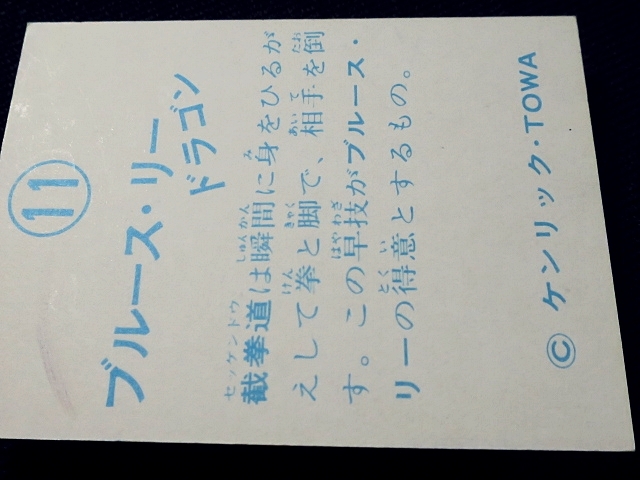 11
ブルース・リー
ドラゴン
截拳道は瞬間に身をひるが
えして拳と脚で、相手を倒
す。この早技がブルース・
リーの得意とするもの。
© ケンリック・TOWA